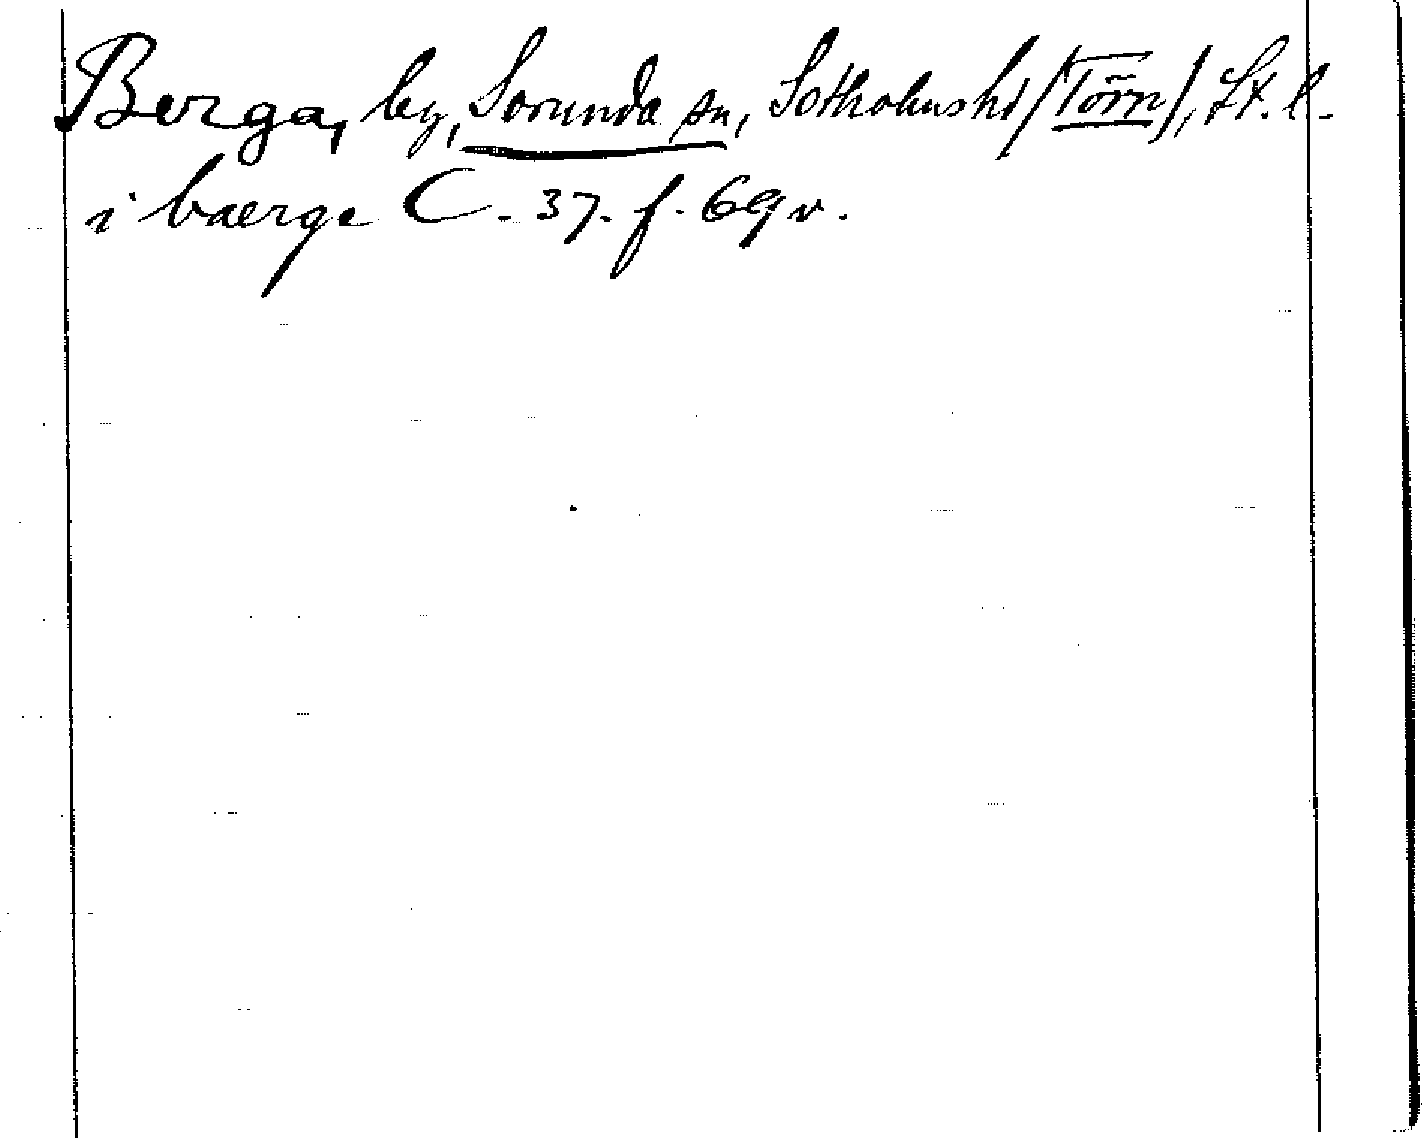 Berga, by, Sorunda sn, Sotholms hd /Törn/, St. l.
i baerge C. 37. f. 69 v.